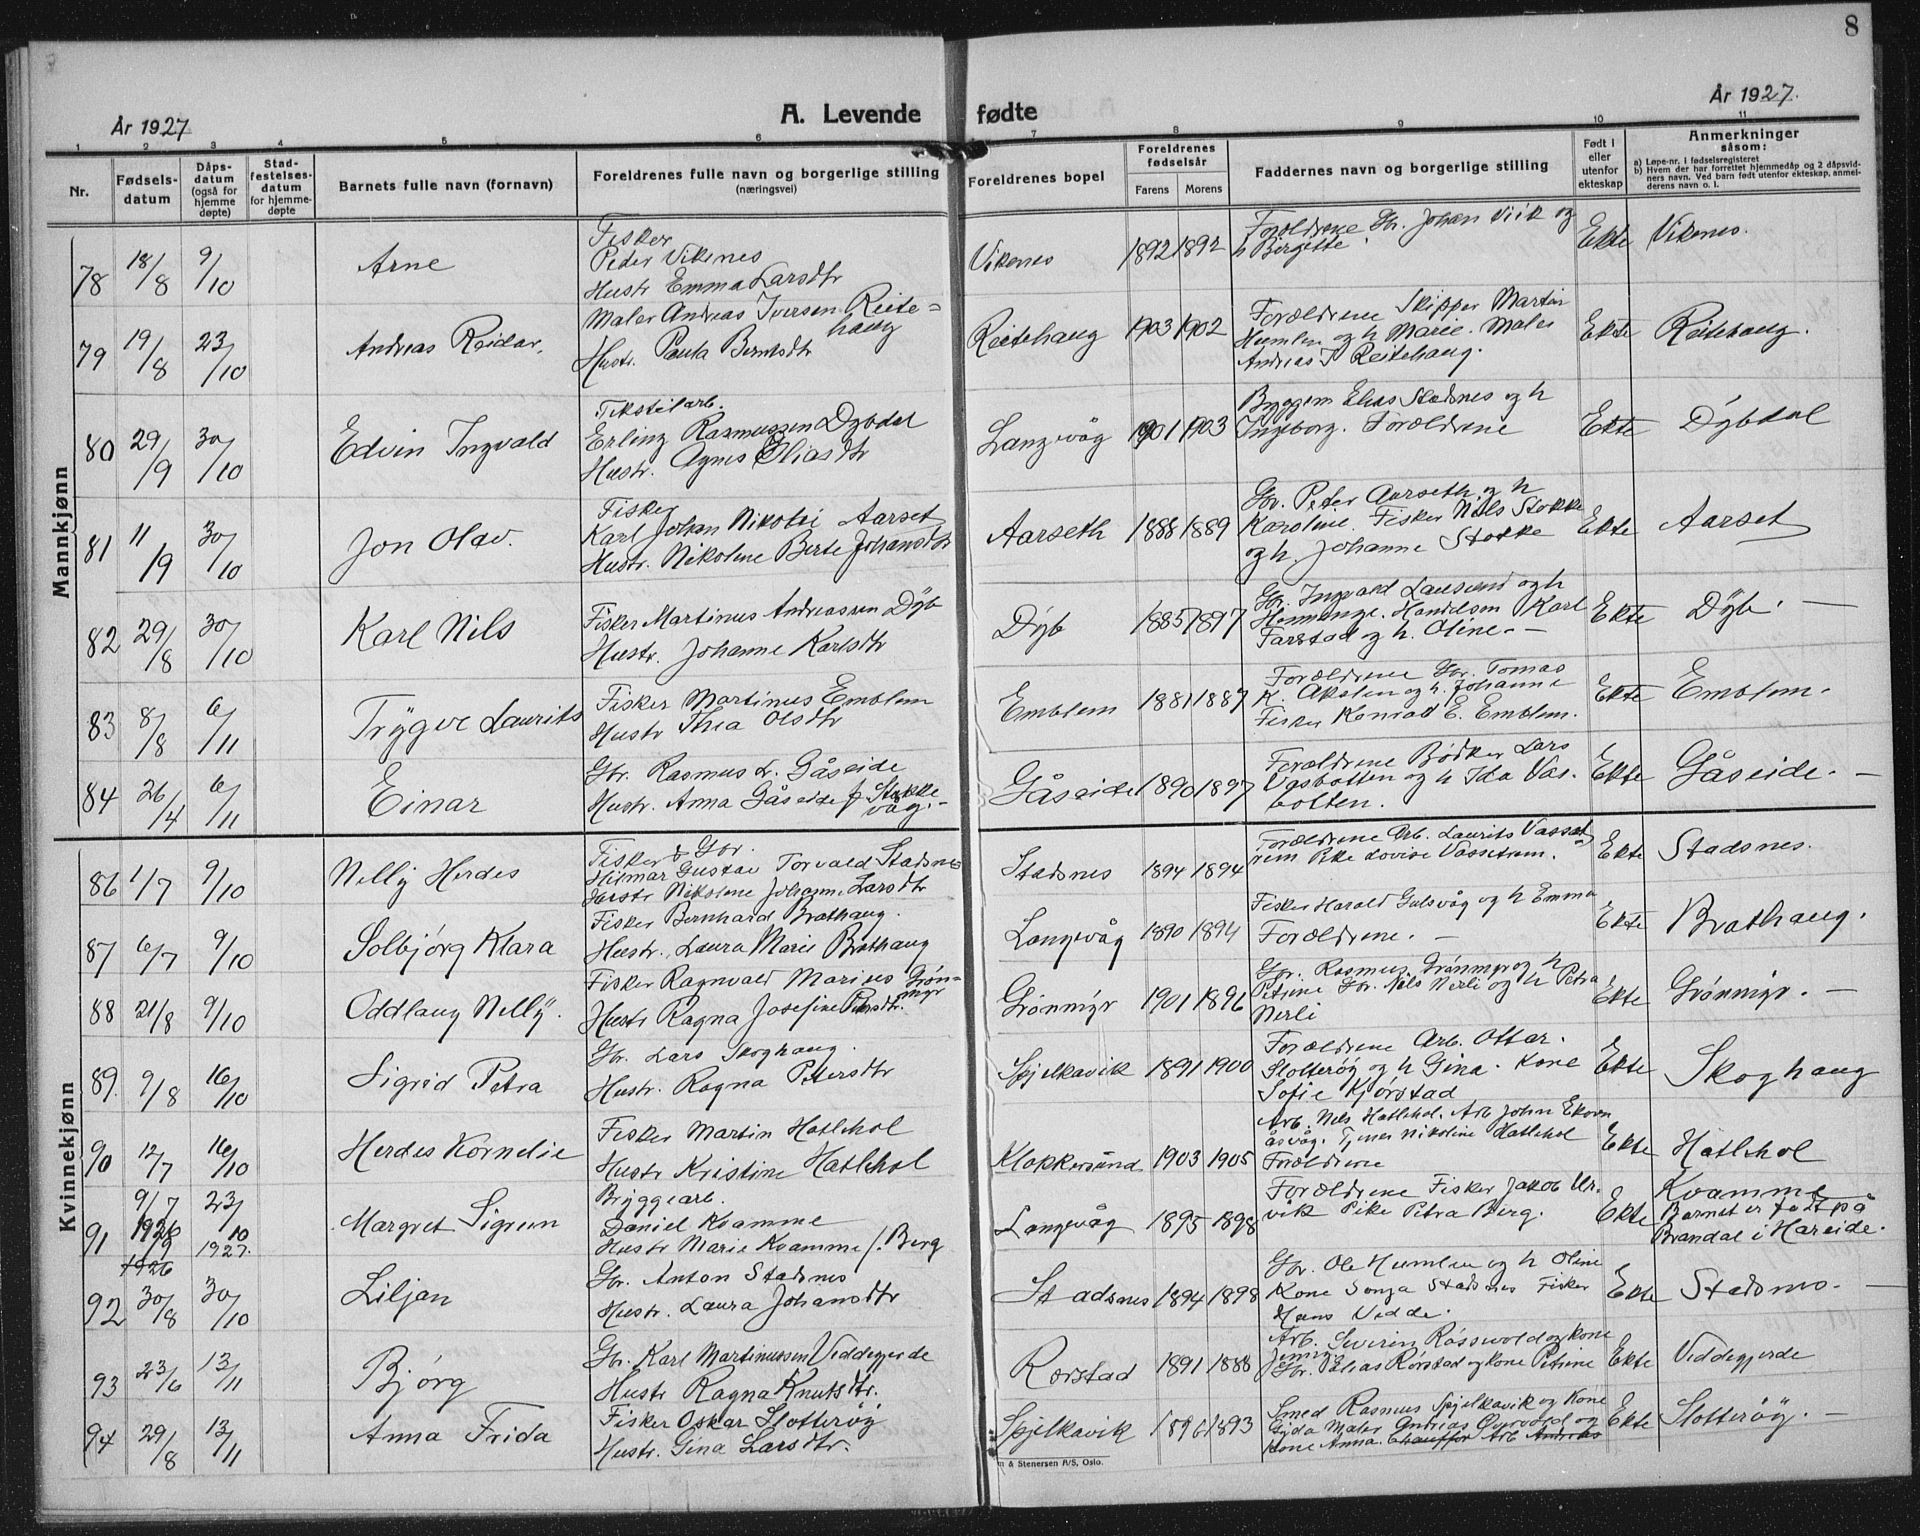 8
År 1927
A. Levende fødte
År 1927.
1 2 3 4 5 6 7 8 9 10 11
Nr.
Fødsels-
datum
Dåps-
datum
(også for
hjemme
døpte)
Stad-
festelses-
datum
for hjemme-
døpte
Barnets fulle navn (fornavn)
Foreldrenes fulle navn og borgerlige stilling
(næringsvei)
Foreldrenes bopel
Foreldrenes
fødselsår
Farens Morens
Faddernes navn og borgerlige stilling
Født i
eller
utenfor
ekteskap
Anmerkninger
såsom:
a) Løpe-nr. i fødselsregisteret
b) Hvem der har forrettet hjemmedåp og 2 dåpsvid-
ners navn. Ved barn født utenfor ekteskap, anmel-
derens navn o. l.
Mannkjønn
78 18/8 9/10 Arne
Fisker
Peder Vikenes
Hustr Emma Larsdtr
Vikenes 1892 1892
Forældrene Gbr. Johan Viik og
h Birgitte
Ekte Vikenes.
79 19/8 23/10 Andreas Reidar.
Maler Andreas Iversen Reite-
haug
Hustr. Paula Berntsdtr
Reitehaug 1903 1902
Forældrene Skipper Martin
Humlen og h Marie. Maler
Andreas I Reitehaug.
Ekte Reitehaug.
80 29/9 30/10 Edvin Ingvald
Tekstilarb.
Erling Rasmussen Dybdal
Hustr. Agnes Eliasdtr
Langevåg 1901 1903
Byggem Elias Stadsnes og h
Ingeborg. Forældrene
Ekte Dybdal
81 11/9 30/10 Jon Olav.
Fisker
Karl Johan Nikolai Aarset
Hustr. Nikoline Berte Johansdtr
Aarseth 1888 1889
Gbr. Peter Aarseth og h
Karoline. Fisker Nils Stokke
og h. Johanne Stokke
Ekte Aarset
82 29/8 30/10 Karl Nils
Fisker Martinus Andreassen Dyb
Hustr. Johanne Karlsdtr
Dyb 1885 1897
Gbr. Ingvald Laursund og h
Handelsm Karl
Farstad og h. Oline. —
Ekte Dyb. —
83 8/8 6/11 Trygve Laurits
Fisker Martinus Emblem
Hustr Thea Olsdtr
Emblem 1881 1887
Forældrene Gbr. Tomas
K. Akslen og h. Johanne
Fisker Konrad E. Emblem.
Ekte Emblem.
84 26/4 6/11 Einar
Gbr. Rasmus L. Gåseide
Hustr. Anna Gåseide f Stokke
våg. —
Gåseide 1890 1897
Forældrene Bødker Lars
Vasbotten og h Ida Vas-
botten.
Ekte Gåseide. —
Kvinnekjønn
86 1/7 9/10 Nelly Herdes
Fisker & Gbr.
Hilmar Gustav Torvald Stadsnes
Hustr Nikoline Johanne Larsdtr
Stadsnes 1894 1894
Forældrene Arb. Laurits Vasset
Pike Lovise Vassetrem.
Ekte Stadsnes.
87 6/7 9/10 Solbjørg Klara
Fisker Bernhard Brathaug.
Hustr. Laura Marie Brathaug
Langevåg 1890 1894
Fisker Harald Gulsvåg og h Emma
Forældrene. —
Ekte Brathaug.
88 21/8 9/10 Oddlaug Nelly.
Fisker Ragnvald Marius Grøn-
myr
Hustr Ragna Josefine Pedersdtr.
Grønmyr 1901 1896
Gbr. Rasmus Grønmyr og h
Petrine Gbr. Nils Nerli og h Petra
Nerli
Ekte Grønmyr. —
89. 9/8 16/10 Sigrid Petra
Gbr. Lars Skoghaug.
Hustr. Ragna Petersdtr
Spjelkavik 1891 1900
Forældrene Arb. Ottar
Slotterøg og h Gina. Kone
Sofie Kjørstad
Ekte Skoghaug
90 12/7 16/10 Herdes Kornelie
Fisker Martin Hatlehol
Hustr Kristine Hatlehol
Klokkersund 1903 1905
Arb. Nils Hatlehol. Arb John Ekorn
åsvåg. Tjener Nikoline Hatlehol
Forældrene
Ekte Hatlehol
91 9/7 1926 23/10 1927. Margret Sigrun
Bryggearb.
Daniel Kvamme
Hustr Marie Kvamme f. Berg
Langevåg 1895 1898
Forældrene Fisker Jakob Ur-
vik Pike Petra Berg.
Ekte Kvamme
Barnet er født på
Brandal i Hareide.
92 30/8 30/10 Liljan
Gbr. Anton Stadsnes
Hustr. Laura Johansdtr
Stadsnes 1894 1898
Gbr. Ole Humlen og h Oline
Kone Sonja Stadsnes Fisker
Hans Vedde.
Ekte Stadsnes —
93 23/6 13/11 Bjørg
Gbr. Karl Martinussen Viddegjerde
Hustr Ragna Knutsdtr.
Rørstad 1891 1888
Arb. Severin Røssvold og kone
Jenny
Gbr. Elias Rørstad og kone Petrine
Ekte Viddegjerde
94 29/8 13/11 Anna Frida
Fisker Oskar Slotterøy
Hustr. Gina Larsdtr.
Spjelkavik 1896 1893
Smed Rasmus Spjelkavik og Kone
Gyda Maler Andreas og
kone Anna. Chauffør Arb Andreas
Ekte Slotterøy. —
& Stenersen A/S, Oslo.